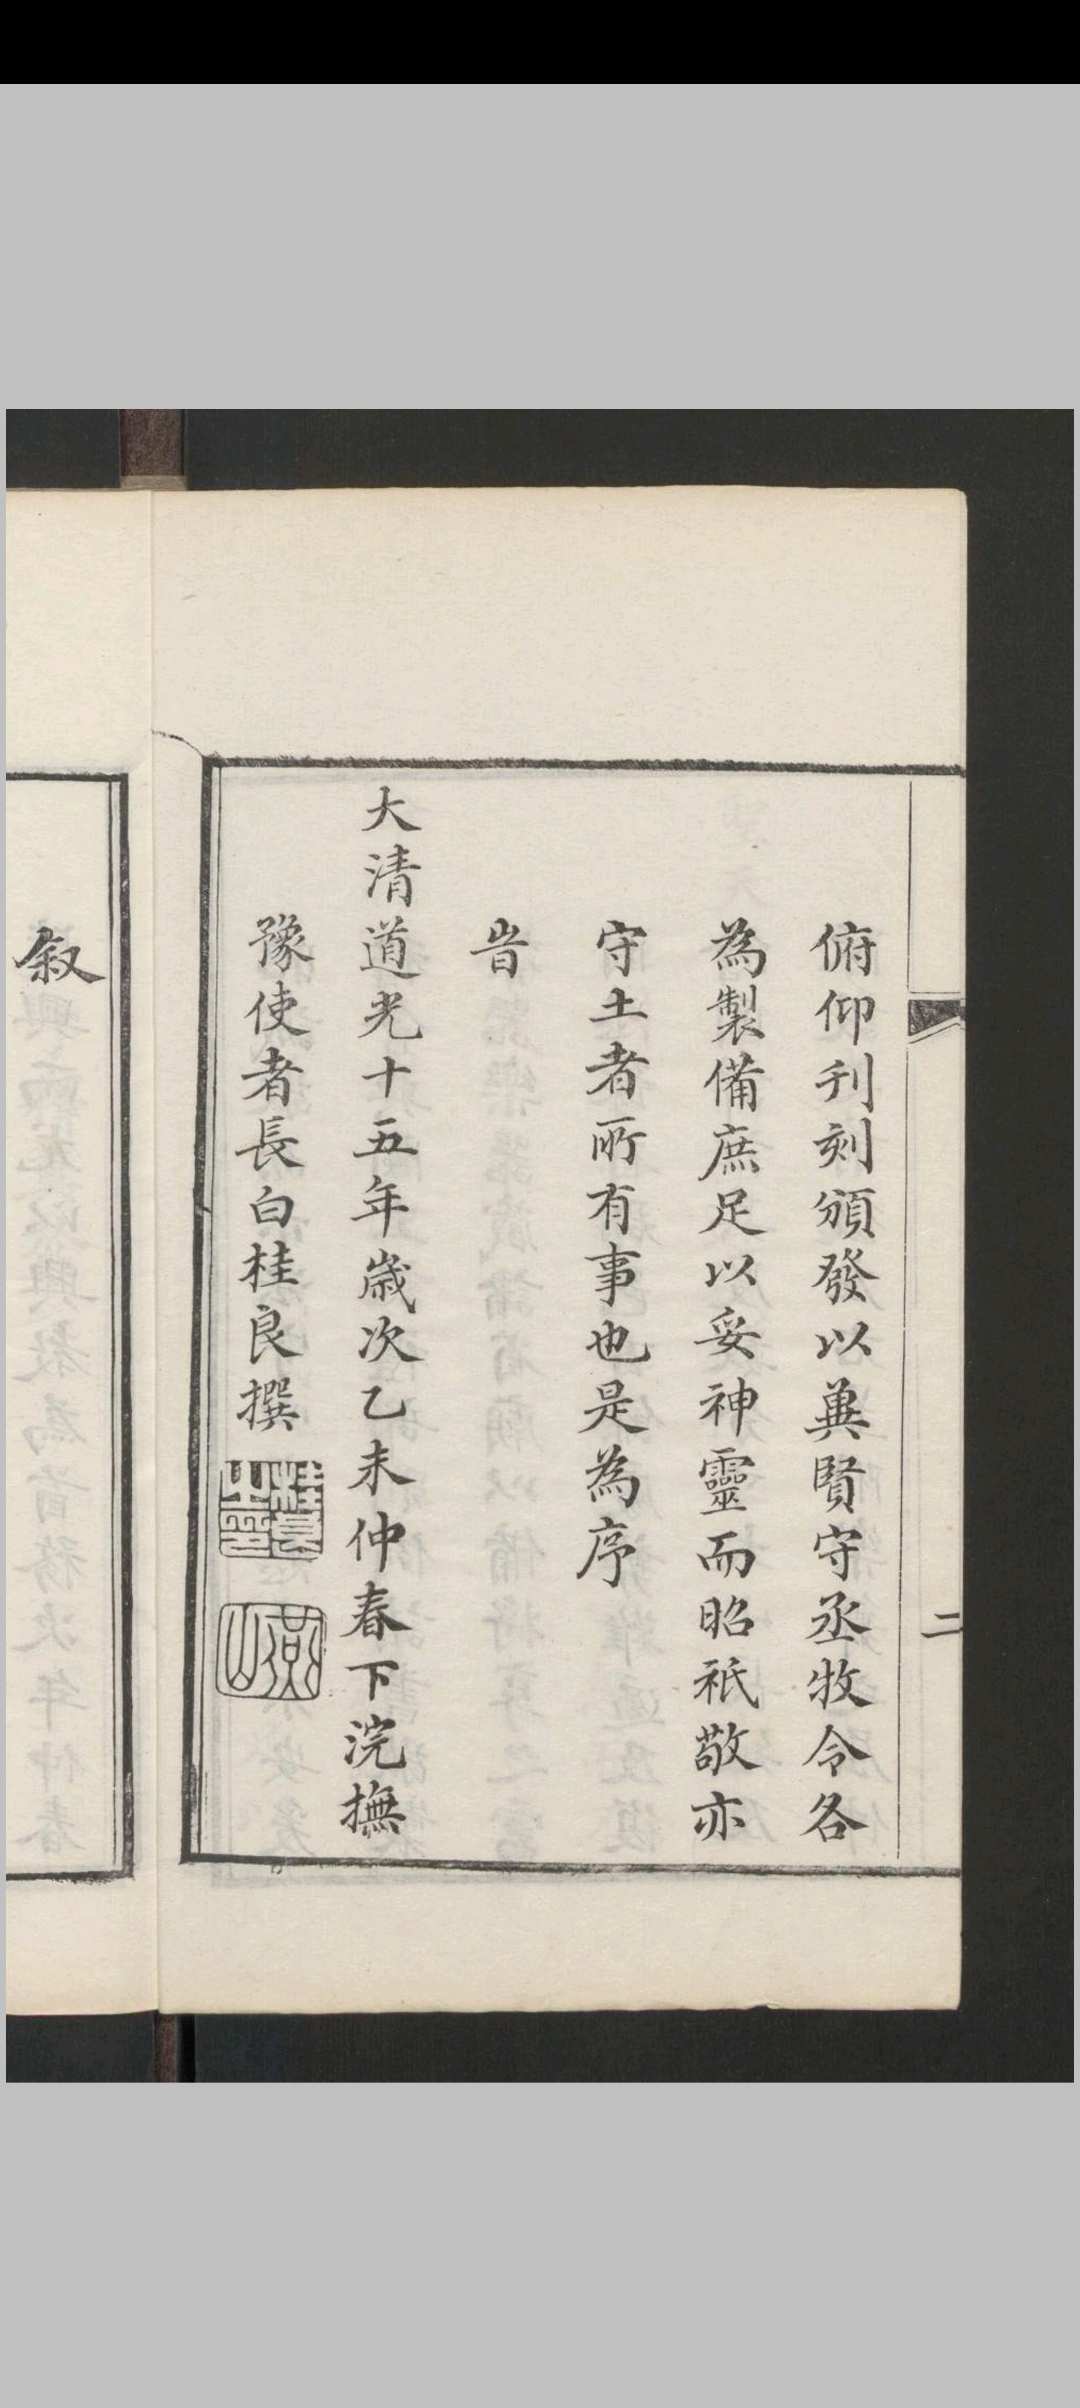 二
俯仰刊刻頒發以兾賢守丞牧令各
為製備庶足以妥神靈而昭祇敬亦
守土者所有事也是為序
旹
大清道光十五年歲次乙未仲春下浣撫
豫使者長白桂良撰
桂良之印
燕山
叙